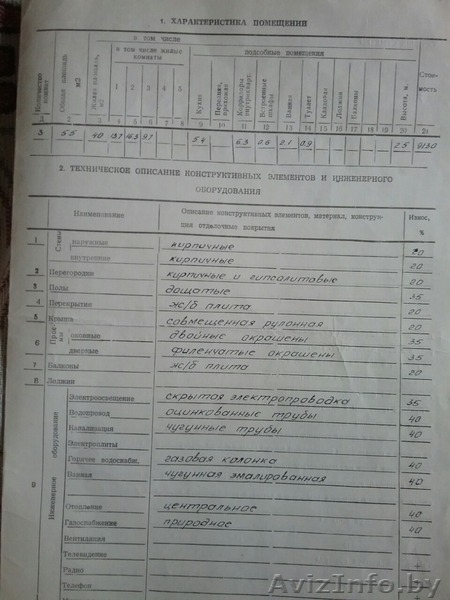 1. ХАРАКТЕРИСТИКА ПОМЕЩЕНИЙ
Количество комнат
Общая площадь м2
Жилая площадь, м2
в том числе
в том числе жилые комнаты
подсобные помещения
Кухня
Передняя, прихожая
Коридоры внутрикварт.
Встроенные шкафы
Ванная
Туалет
Кладовая
Лоджия
Балконы
Высота, м.
Стоимость
1 2 3 4 5
1 2 3 4 5 6 7 8 9 10 11 12 13 14 15 16 17 18 19 20 21
3 55 40 13,7 16,3 9,7 5,4 6.3 0.6 2.1 0.9 2.5 9130
2. ТЕХНИЧЕСКОЕ ОПИСАНИЕ КОНСТРУКТИВНЫХ ЭЛЕМЕНТОВ И ИНЖЕНЕРНОГО
ОБОРУДОВАНИЯ
Наименование
Описание конструктивных элементов, материал, конструкция отделочные покрытия
Износ, %
1 Стены наружные кирпичные 20
внутренние кирпичные 20
2 Перегородки кирпичные и гипсолитовые 20
3 Полы дощатые 35
4 Перекрытия ж/б плита 20
5 Крыша совмещенная рулонная 20
6 Проемы оконные двойные окрашены 35
дверные филенчатые окрашены 35
7 Балконы ж/б плита 20
8 Лоджии
9 Инженерное оборудование
Электроосвещение скрытая электропроводка 35
Водопровод оцинкованные трубы 40
Канализация чугунные трубы 40
Электроплиты
Горячее водоснабж. газовая колонка 40
Ванная чугунная эмалированная 40
Отопление центральное 40
Газоснабжение природное 40
Вентиляция
Телевидение
Радио
Телефон
AvizInfo.by